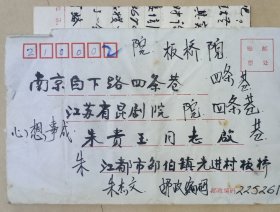 210002 院 板桥 院
贴邮
票处
南京白下路四条巷 四条巷
江苏省昆剧院 院 四条巷
心想事成 朱贵玉同志启 巷
朱 江都市邵伯镇先进村板桥
朱杰文 邮政编码 225261